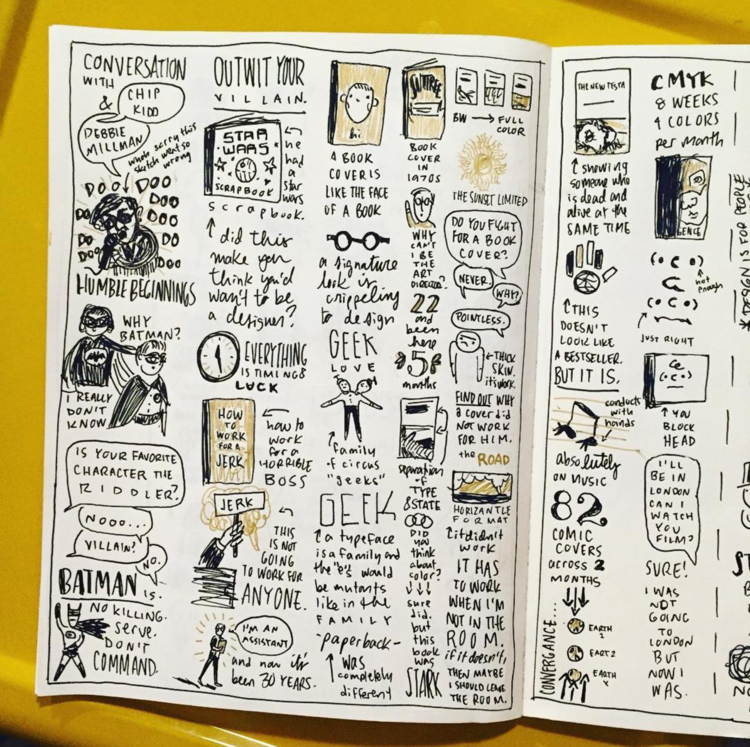 CONVERSATION
WITH
CHIP
KIDD
&
DEBBIE
MILLMAN
whole sorry this
sketch went so
wrong
DOO DOO
DO DOO
DO DO
DO DO
DO DO
HUMBLE BEGINNINGS
WHY
BATMAN?
I REALLY
DON'T
KNOW
IS YOUR FAVORITE
CHARACTER THE
RIDDLER?
NOOO...
VILLAIN?
NO.
BATMAN IS.
NO KILLING.
SERVE.
DON'T
COMMAND.
OUTWIT YOUR
VILLAIN.
STAR
WARS
SCRAPBOOK
he
had
a
star
wars
scrapbook.
did this
make you
think you'd
want to be
a designer?
EVERYTHING
IS TIMING &
LUCK
HOW
TO
WORK
FOR A
JERK
how to
work
for a
HORRIBLE
BOSS
JERK
THIS
IS NOT
GOING
TO WORK FOR
ANYONE.
I'M AN
ASSISTANT
and now it's
been 30 YEARS.
hi
A BOOK
COVER IS
LIKE THE FACE
OF A BOOK
a signature
look is
crippling
to design
GEEK
LOVE
family
of circus
"geeks"
GEEK
a typeface
is a family and
the "e's" would
be mutants
like in the
FAMILY
-paperback-
was
completely
different
SUTTREE
BOOK
COVER
IN
1970s
WHY
CAN'T
I BE
THE
ART
DIRECTOR?
22
and
been
here
5
months
separation
of
TYPE
& STATE
DID
you
think
about
color?
sure
did.
but
this
book
was
STARK
BW → FULL
COLOR
THE SUNSET LIMITED
DO YOU FIGHT
FOR A BOOK
COVER?
NEVER.
WHY?
POINTLESS.
THICK
SKIN.
it's work.
FIND OUT WHY
a cover did
NOT WORK
FOR HIM.
the ROAD
HORIZANTLE
FORMAT
it didn't
work
IT HAS
TO WORK
WHEN I'M
NOT IN THE
ROOM.
if it doesn't,
THEN MAYBE
I SHOULD LEAVE
THE ROOM.
THE NEW TESTA
showing
someone who
is dead and
alive at the
SAME TIME
THIS
DOESN'T
LOOK LIKE
A BESTSELLER.
BUT IT IS.
conducts
with
hands
absolutely
ON MUSIC
82
COMIC
COVERS
across 2
MONTHS
CONVERGANCE...
EARTH
1
EART 2
EARTH
X
CMYK
8 WEEKS
4 COLORS
per month
GENCE
not
enough
JUST RIGHT
YOU
BLOCK
HEAD
I'LL
BE IN
LONDON
CAN I
WATCH
YOU
FILM?
SURE!
I WAS
NOT
GOING
TO
LONDON
BUT
NOW I
WAS.
*DESIGN IS FOR PEOPLE